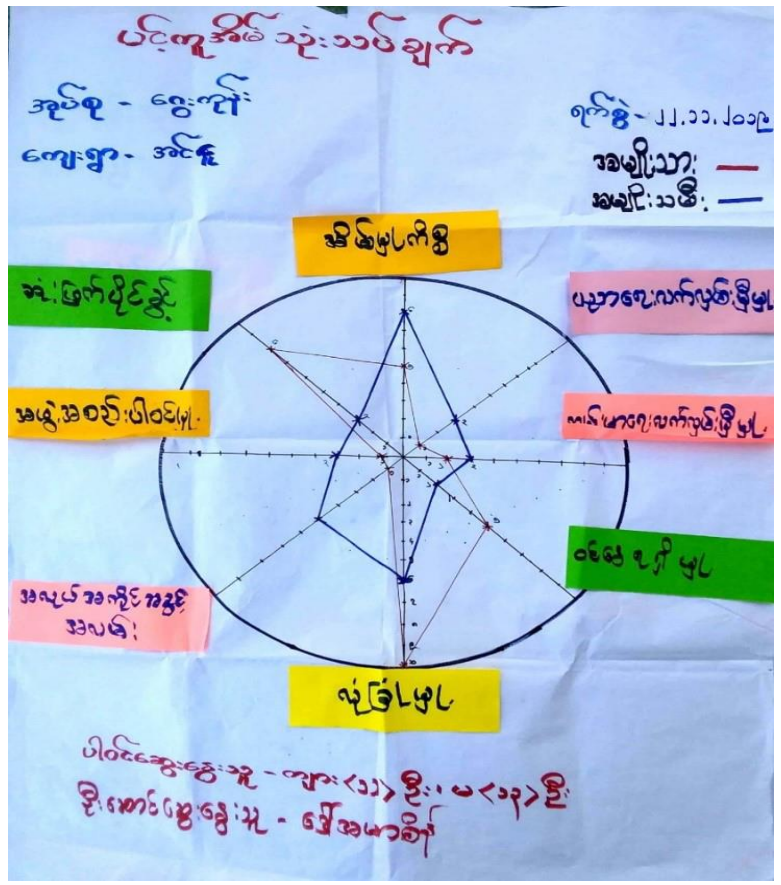 ပင့်ကူအိမ် သုံးသပ်ချက်
အုပ်စု - ရွှေးကုန်း
ရက်စွဲ - ၂၂.၁၁.၂၀၁၉
ကျေးရွာ - အင်
အမျိုးသား
အမျိုးသမီး
အိမ်မှုကိစ္စ
ဆုံးဖြတ်ပိုင်ခွင့်
ပညာရေးလက်လှမ်းမှီမှု
အဖွဲ့အစည်းပါဝင်မှု
ကျန်းမာရေးလက်လှမ်းမှီမှု
ဝင်ငွေရရှိမှု
အလုပ်အကိုင်အခွင့်
အလမ်း
လုံခြုံမှု
ပါဝင်ဆွေးနွေးသူ - ကျား <၁၁> ဦး၊ မ <၁၃> ဦး
ဦးဆောင်ဆွေးနွေးသူ - ဒေါ်အမာစိန်